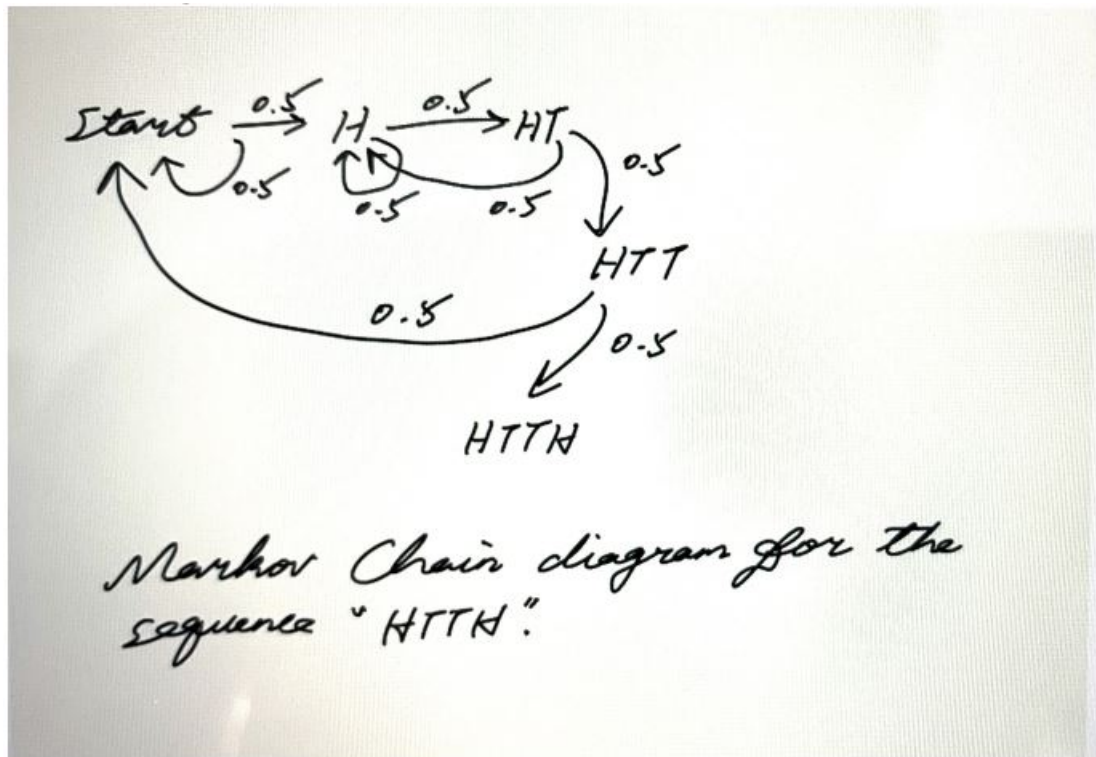 0.5 0.5
Start H HT
0.5 0.5 0.5 0.5
HTT
0.5
0.5
HTTH
Markov Chain diagram for the
sequence "HTTH".